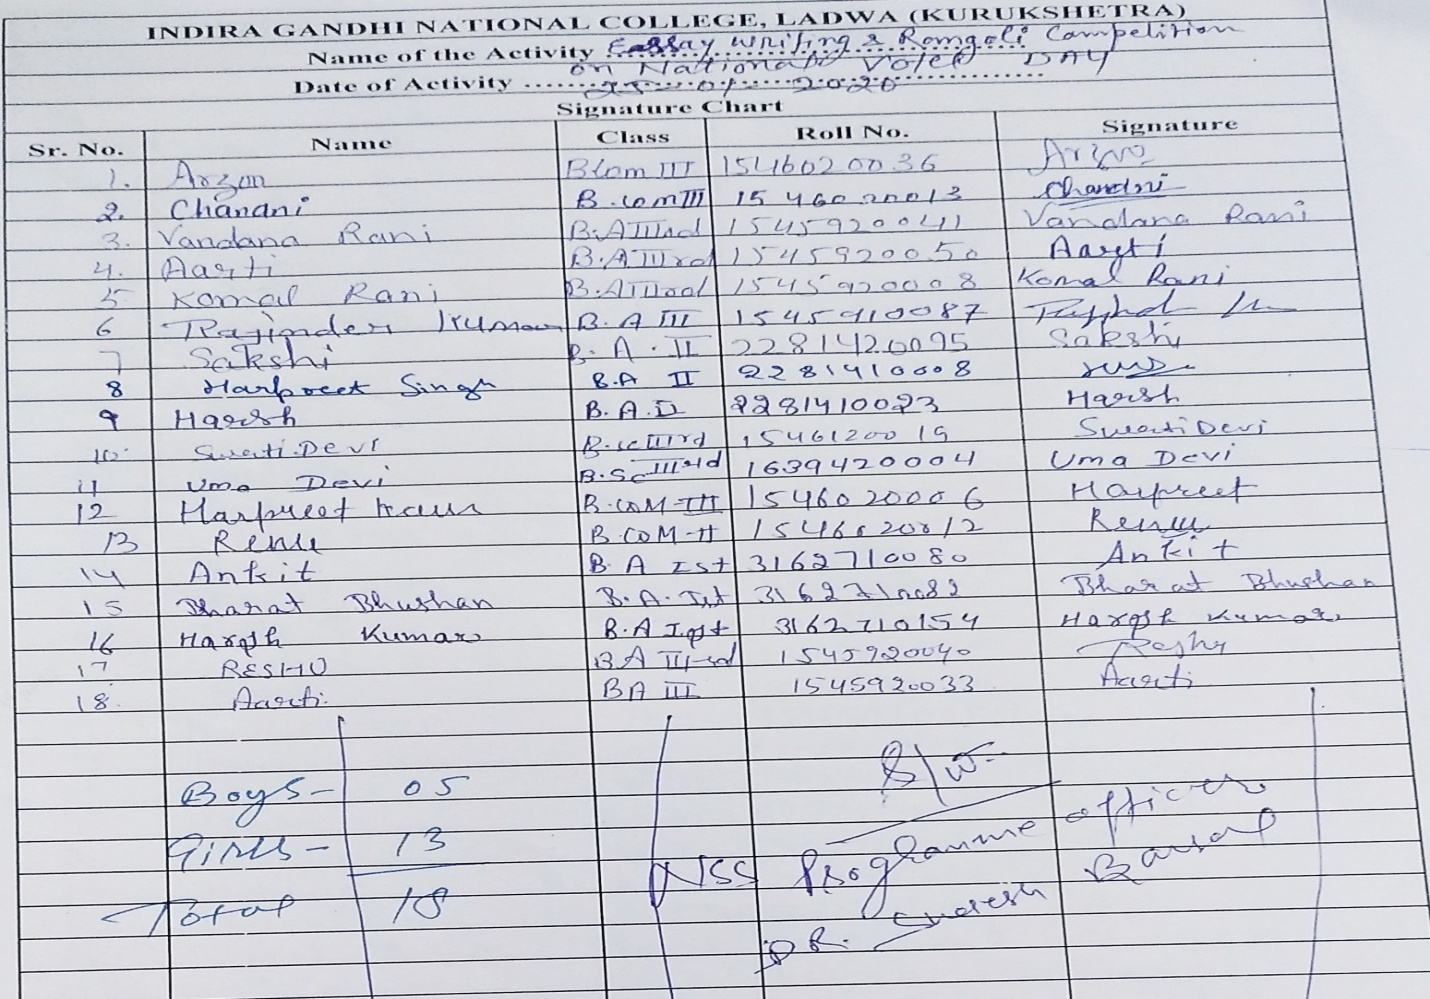 INDIRA GANDHI NATIONAL COLLEGE, LADWA (KURUKSHETRA)
Name of the Activity Essay Writing & Rangoli Competition
on National Voter DAY
Date of Activity 25-01-2020
Signature Chart
Sr. No. Name Class Roll No. Signature
1. Arzon B.Com III 1546020036
2. Chanani B.com III 1546020013 Chandni
3. Vandana Rani B.A IIIrd 1545920041 Vandana Rani
4. Aarti B.A IIIrd 1545920050 Aarti
5 Komal Rani B.A IIIrd 1545920008 Komal Rani
6 Rajinder Kumar B.A III 1545910087
7 Sakshi B.A.II 2281420095 Sakshi
8 Harpreet Singh B.A II 2281410008
9 Harsh B.A.II 2281410023 Harsh
10. Swati.Devi B.sc IIIrd 1546120019 Swati Devi
11 Uma Devi B.Sc IIIrd 1639420004 Uma Devi
12 Harpreet Kaur B.COM-III 1546020006 Harpreet
13 Renu B.COM-II 1546020012 Renu
14 Ankit B.A Ist 3162710080 Ankit
15 Bharat Bhushan B.A.Ist 3162710082 Bharat Bhushan
16 Harsh Kumar B.A Ist 3162710154 Harsh Kumar
17 RESHU BA III-rd 1545920040 Reshu
18. Aarti. BA III 1545920033 Aarti
Boys- 05
Girls- 13
Total 18
NSS Programme officer
DR. Suresh Bansal